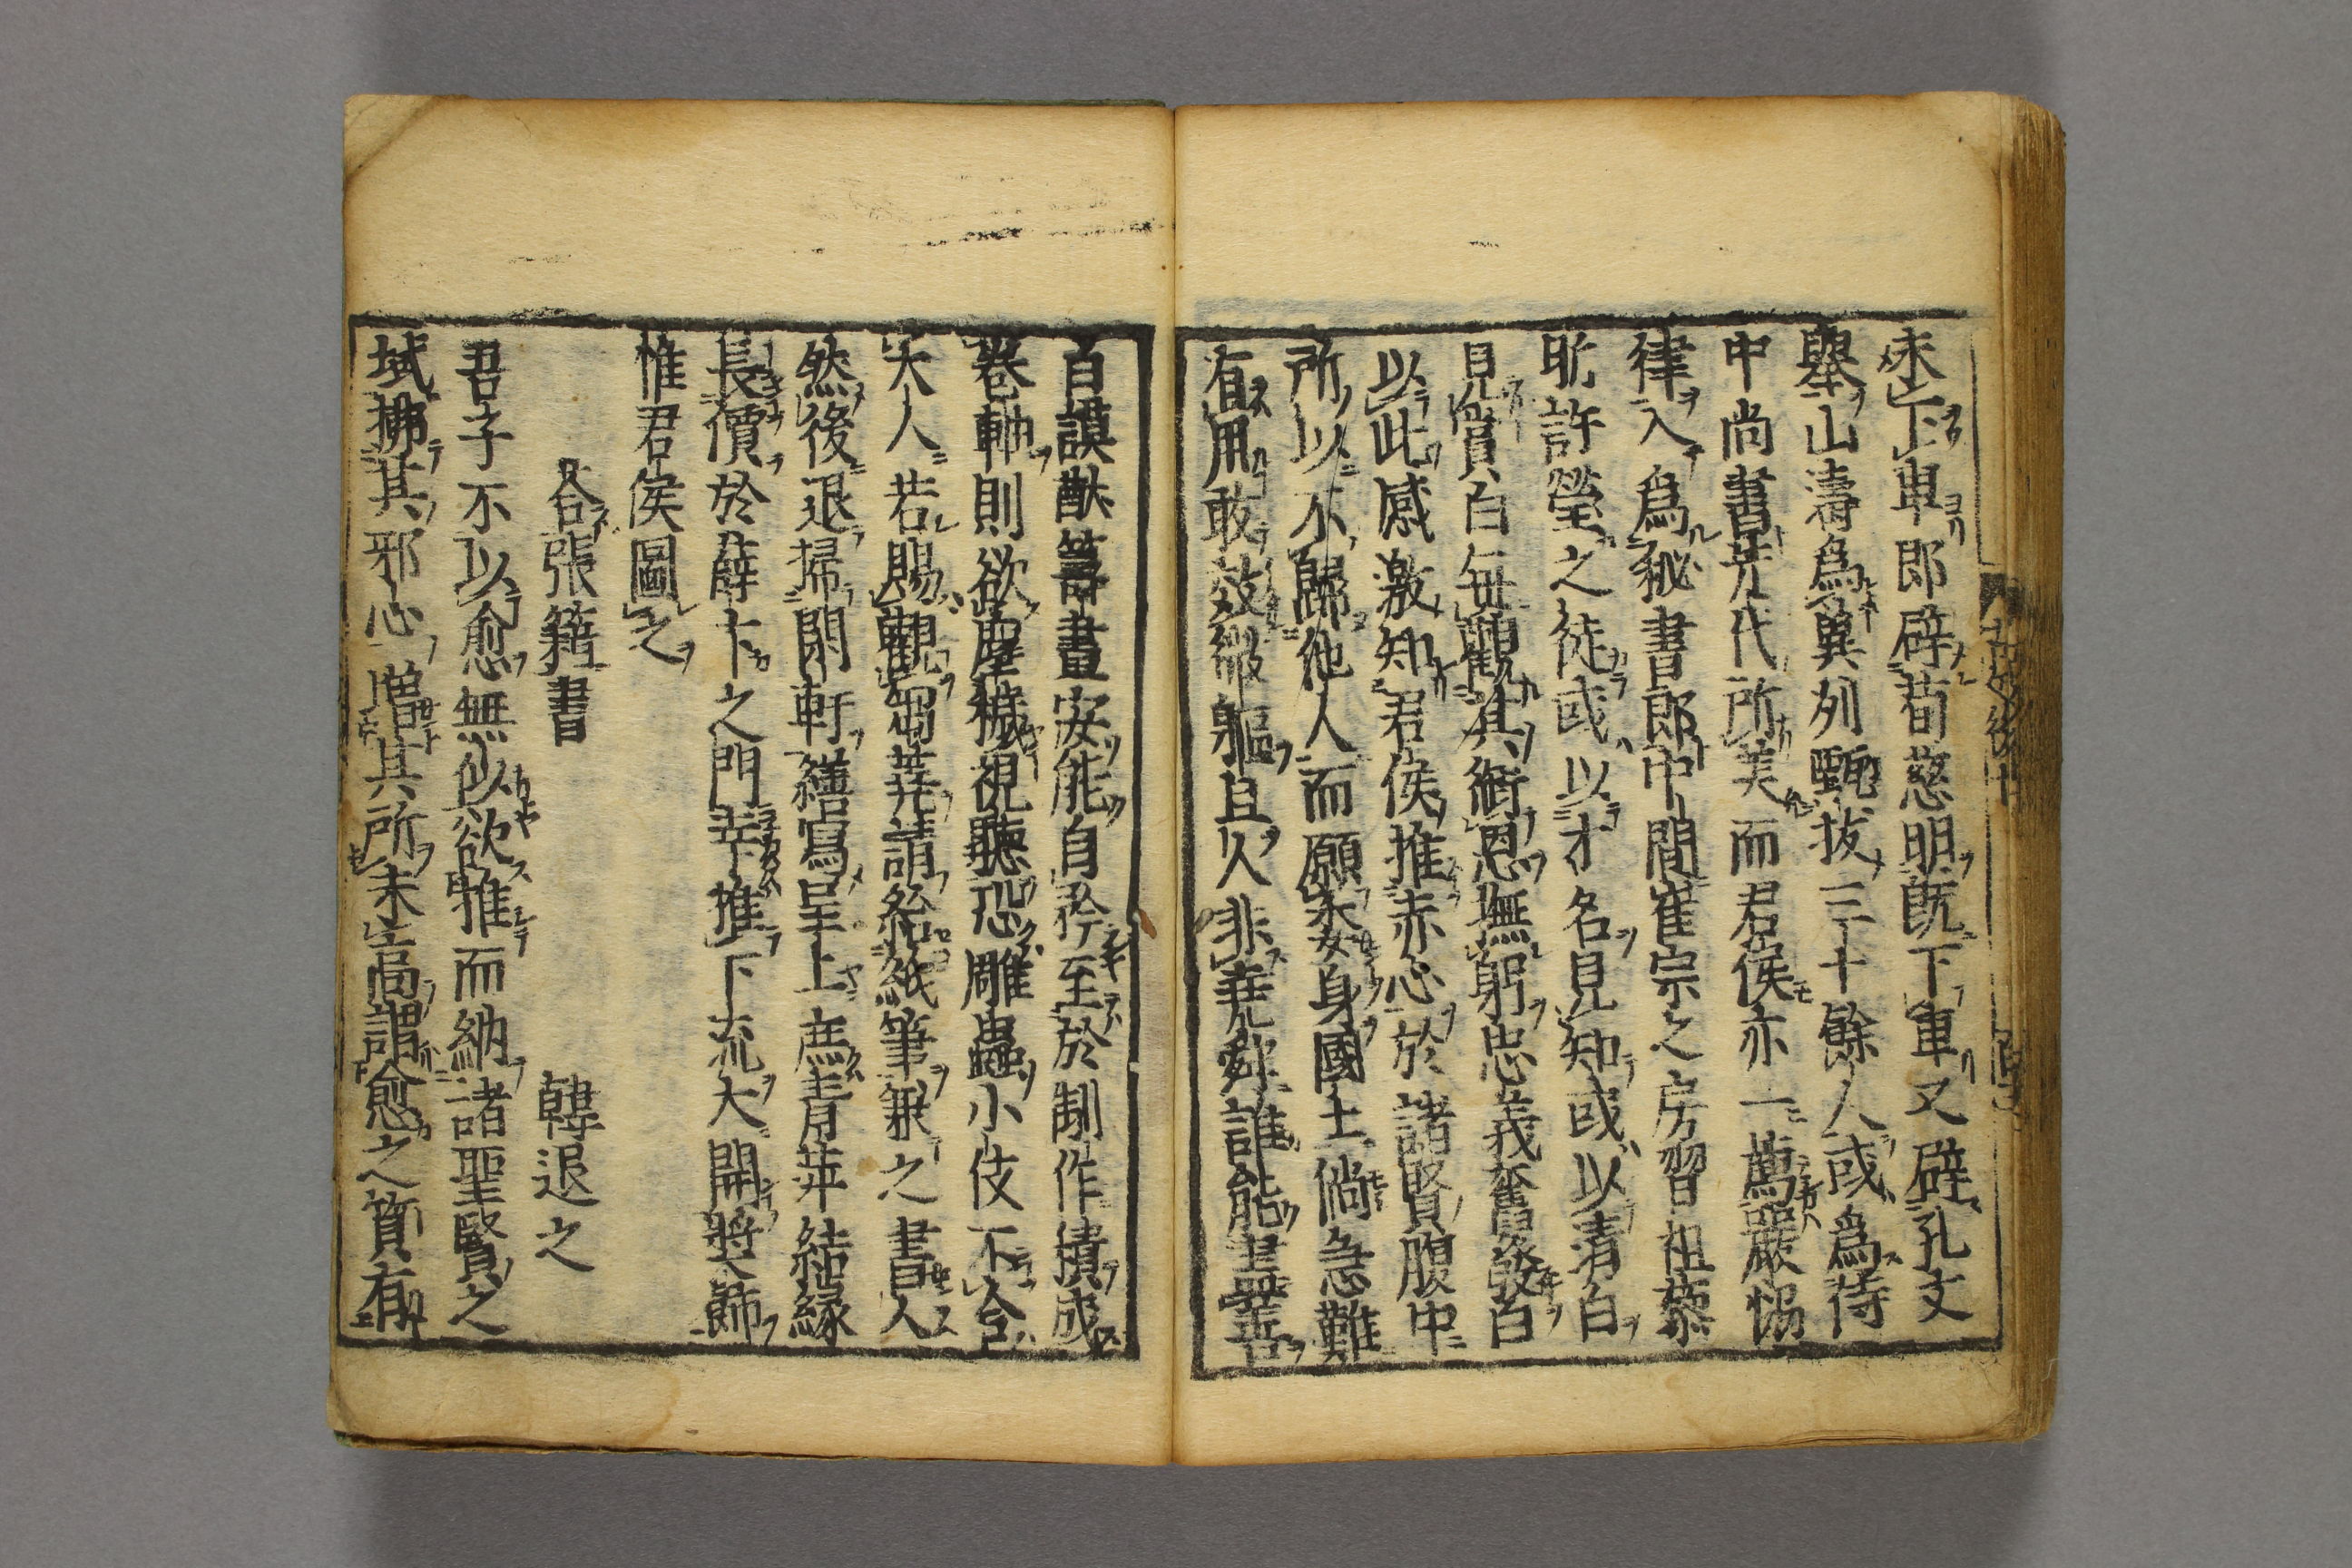 未下車即辟荀慈明既下車又辟孔文
舉山濤爲冀列甄拔三十餘人或爲侍
中尚書先代所美而君侯亦一薦嚴恊
律入爲秘書郎中間崔宗之房習祖黎
昕許瑩之徒或以才名見知或以清白
見賞白毎觀其銜恩撫躬忠義奮發白
以此感激知君侯推赤心於諸賢腹中
所以不歸他人而願委身國士倘急難
有用敢效微軀且人非堯舜誰能盡善
白謨猷籌畫安能自矜至於制作積成
卷軸則欲塵穢視聽恐雕蟲小伎不合
大人若賜觀芻蕘請給紙筆兼之書人
然後退掃閑軒繕寫呈上庶青萍結緑
長價於薛卞之門幸推下流大開奬飾
惟君侯圖之
答張籍書
韓退之
吾子不以愈無似欲推而納諸聖賢之
域拂其邪心增其所未高謂愈之質有